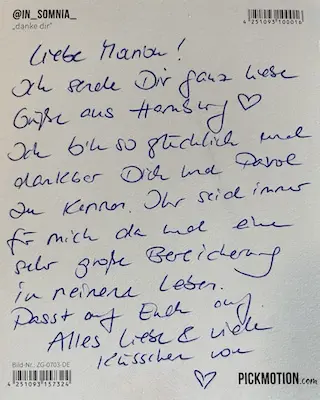 @IN_SOMNIA_
„danke dir"
4 251093 100016
Liebe Marion!
Ich sende Dir ganz liebe
Grüße aus Hamburg ♡
Ich bin so glücklich und
dankbar Dich und Pavol
zu kennen. Ihr seid immer
für mich da und eine
sehr große Bereicherung
in meinem Leben.
Passt auf Euch auf.
Alles Liebe & viele
Küsschen von
♡
Bild-Nr.: ZG-0703-DE
4 251093 157324
PICKMOTION.com